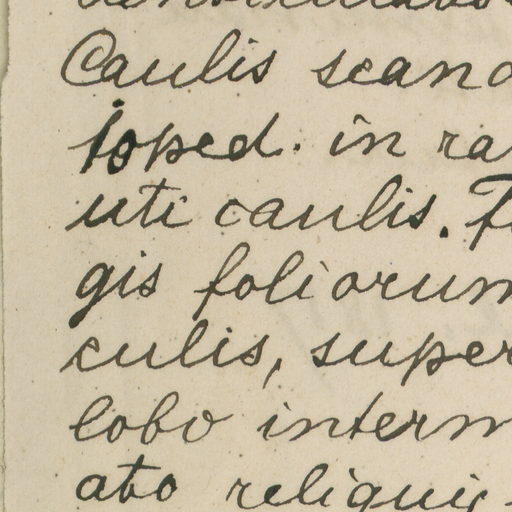 Caulis scand
loped. in ra
uti caulis. F
gis foliorum
culis, super
lobo interm
ato reliquis